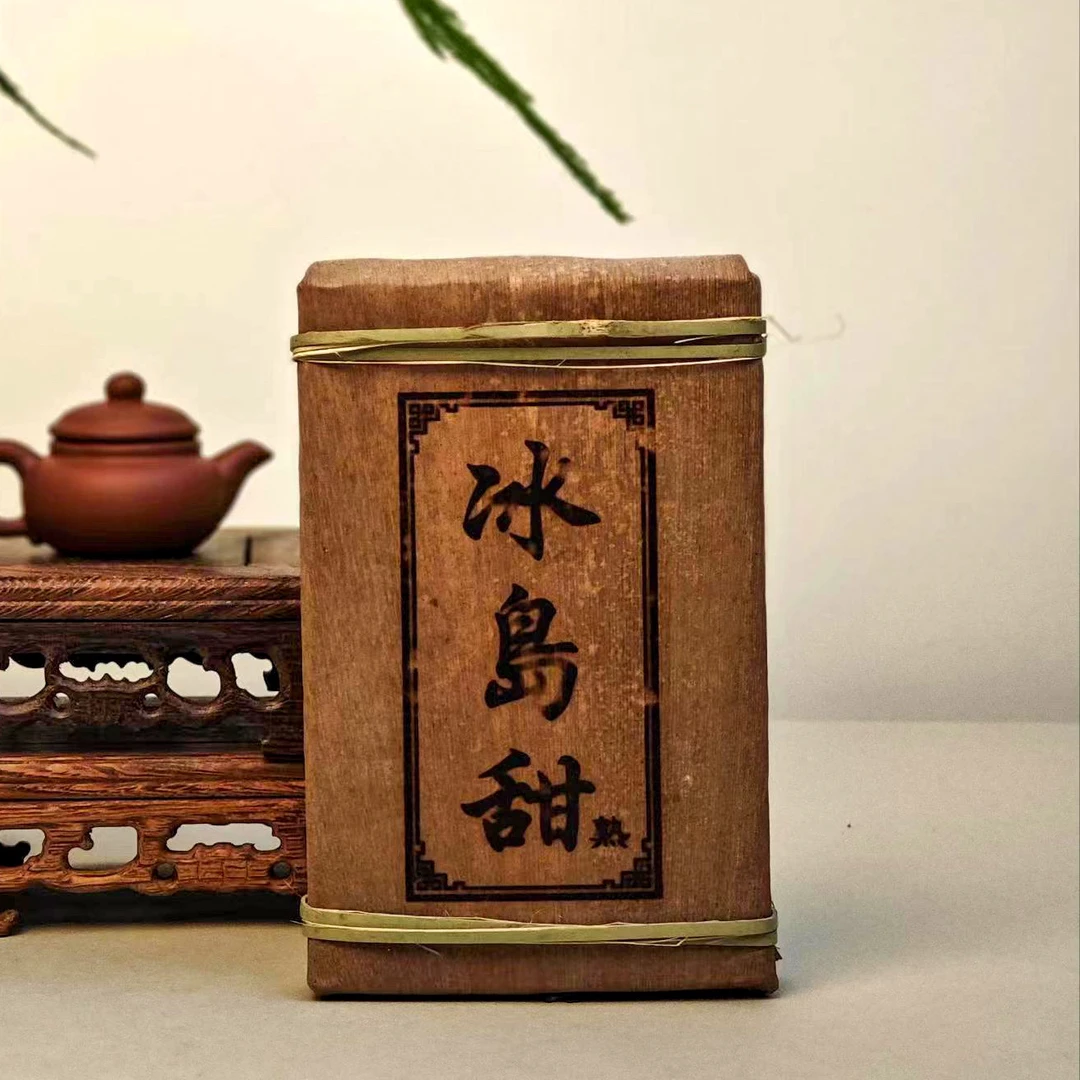 冰島甜
熟